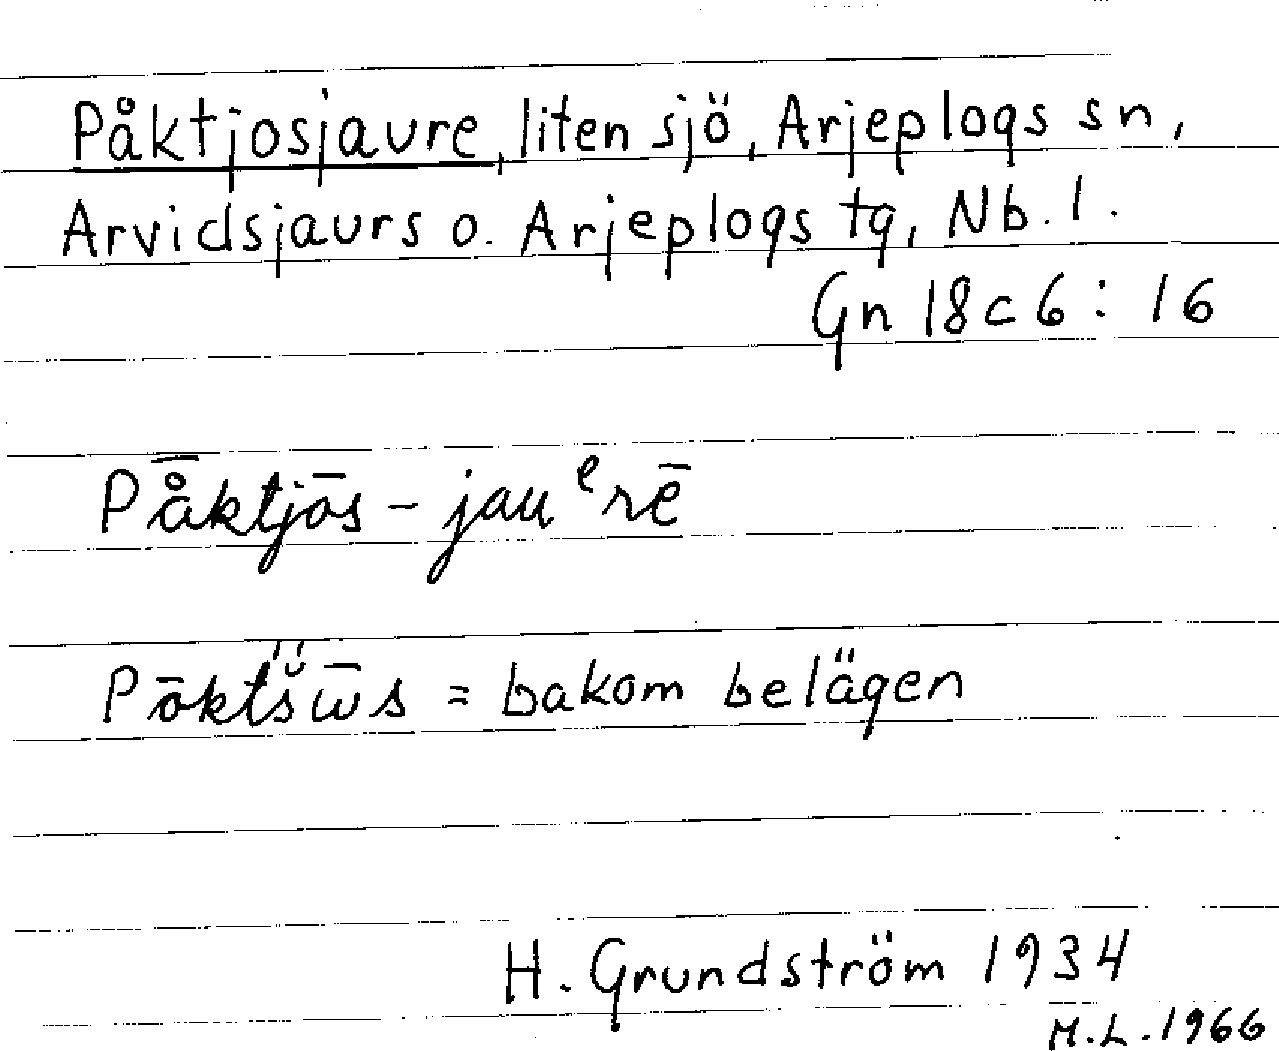 Påktjosjaure, liten sjö, Arjeplogs sn,
Arvidsjaurs o. Arjeplogs tg, Nb. l.
Gn 18 c 6 : 16
På̄ktjōs - jauᵉrē
Pōktš̆ω̄s = bakom belägen
H. Grundström 1934
M.L. 1966